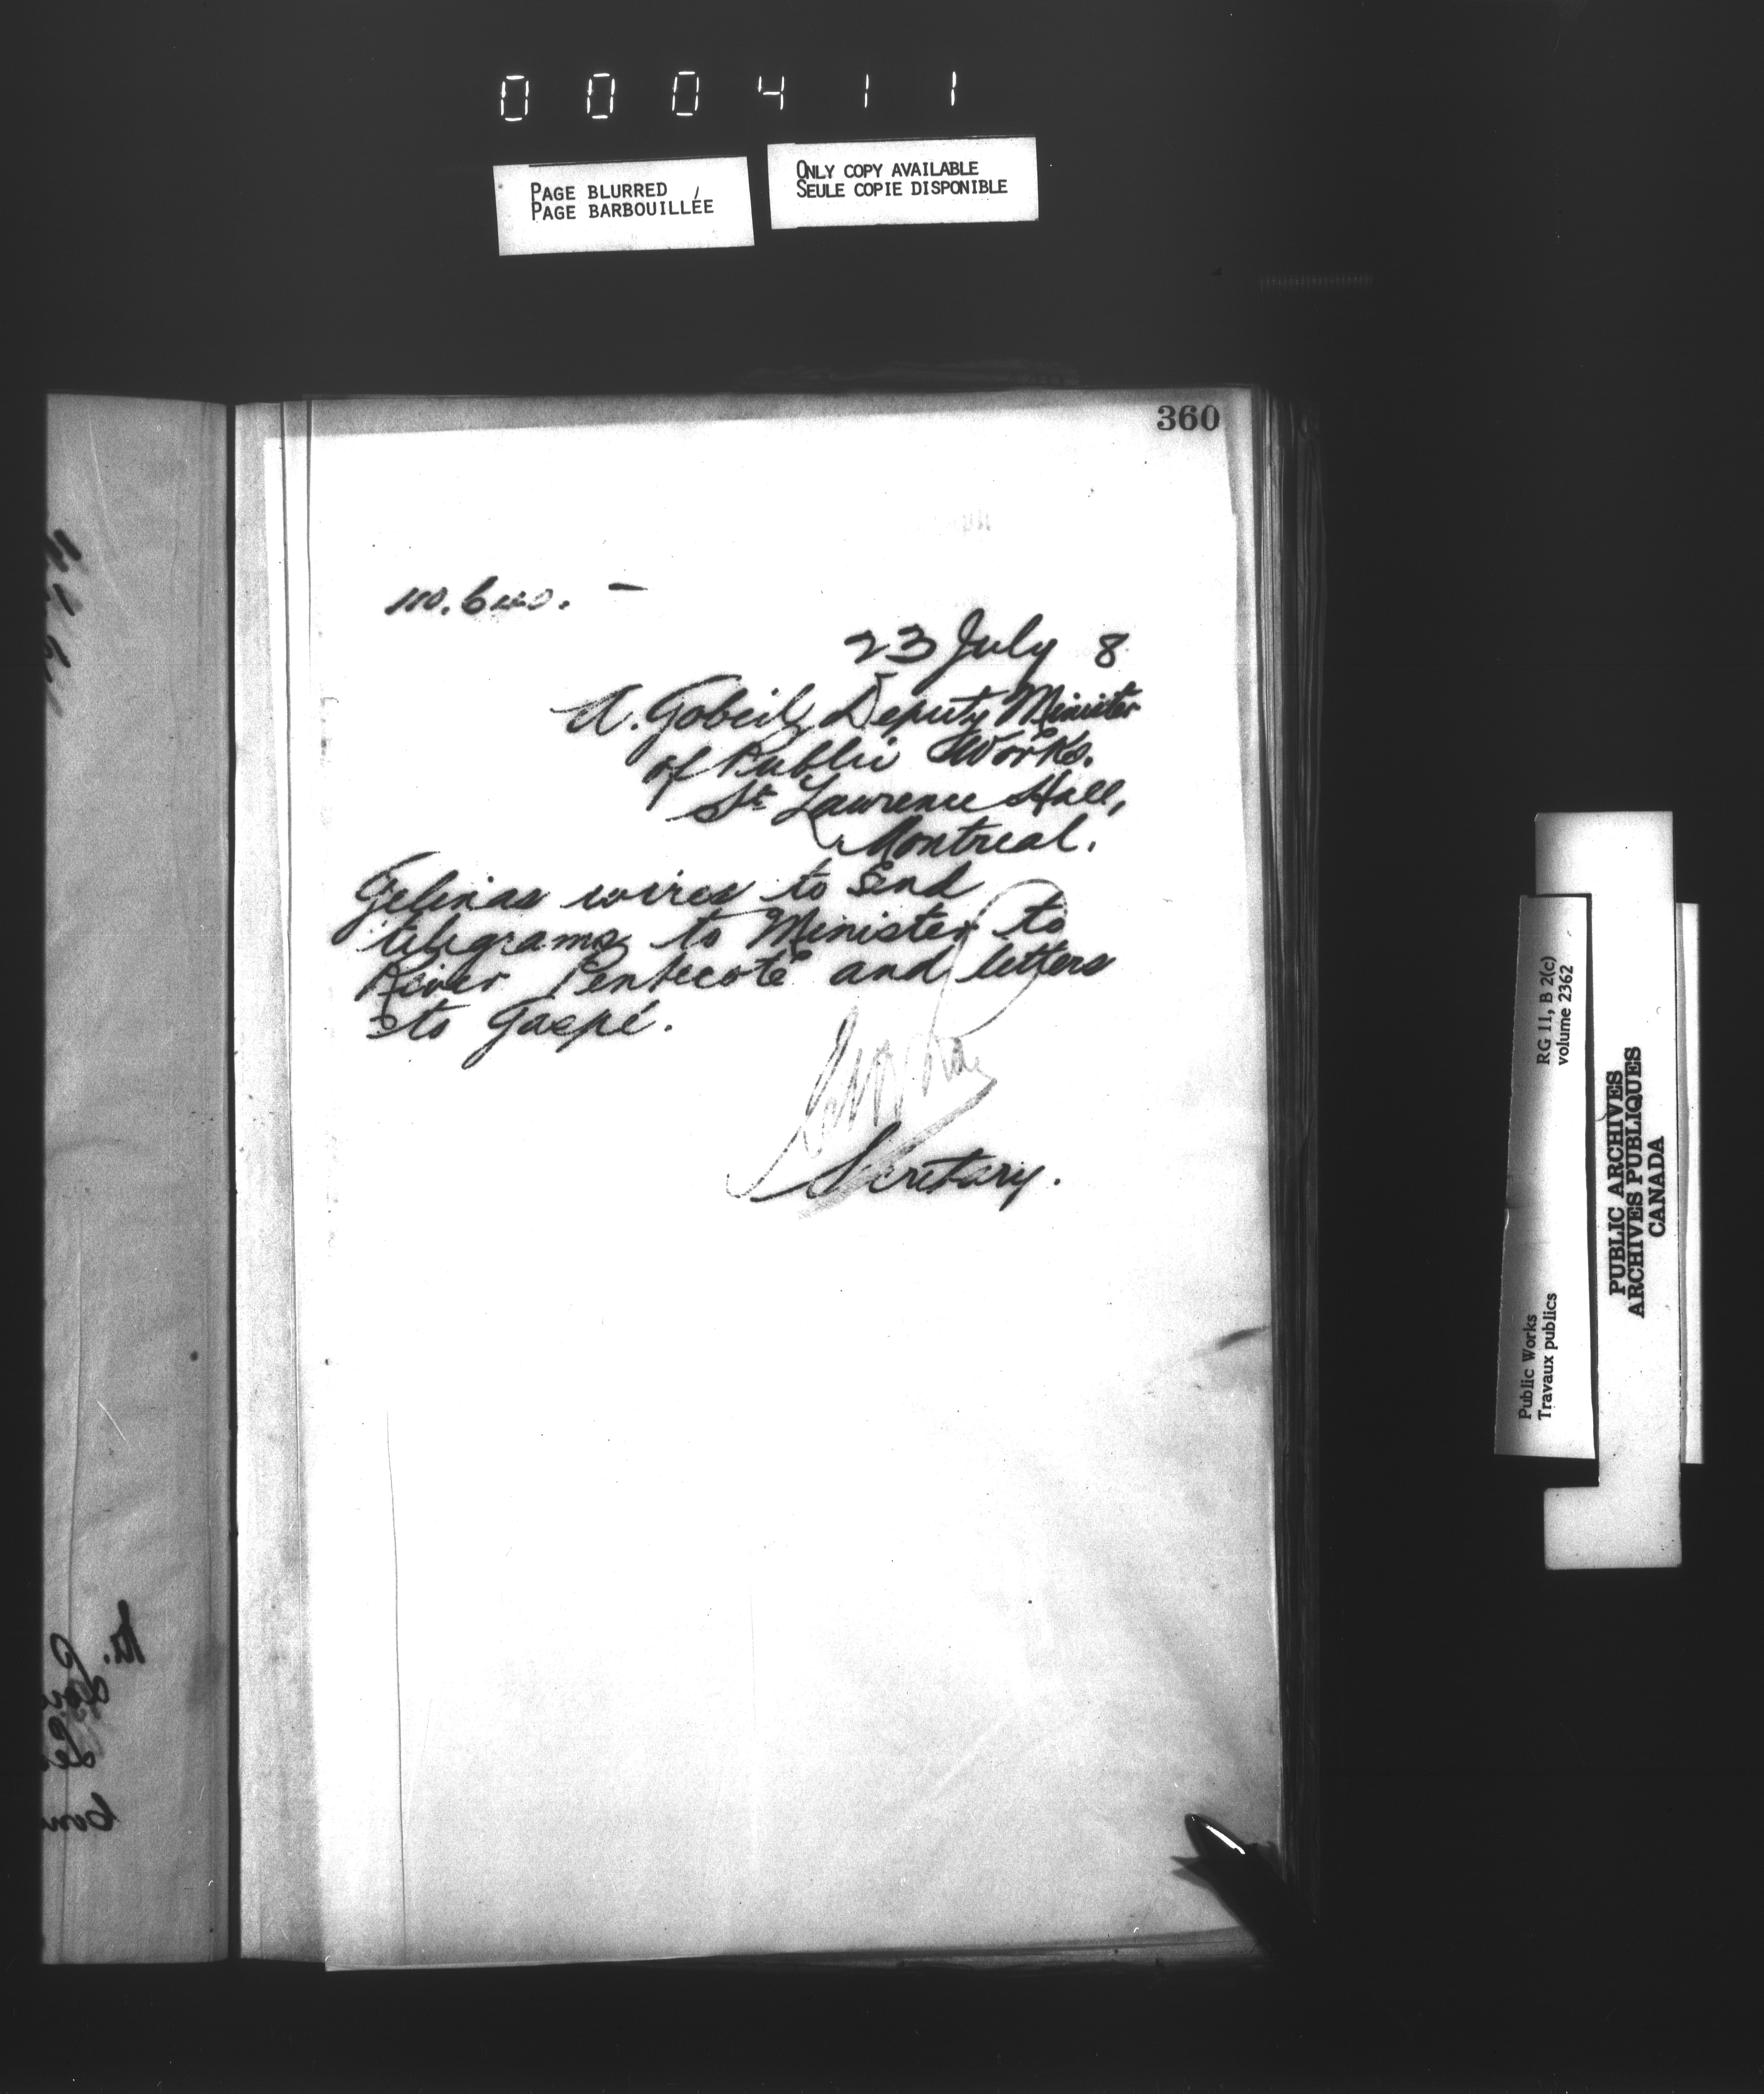 000411
PAGE BLURRED
PAGE BARBOUILLÉE
ONLY COPY AVAILABLE
SEULE COPIE DISPONIBLE
360
23 July 8
A. Gobeil, Deputy Minister
of Public Works.
St Lawrence Hall,
Montreal.
Gelinas wires to send
telegrams to Minister to
River Pentecote and letters
to Gaspé.
Secretary.
RG 11, B 2(c)
volume 2362
Public Works
Travaux publics
PUBLIC ARCHIVES
ARCHIVES PUBLIQUES
CANADA